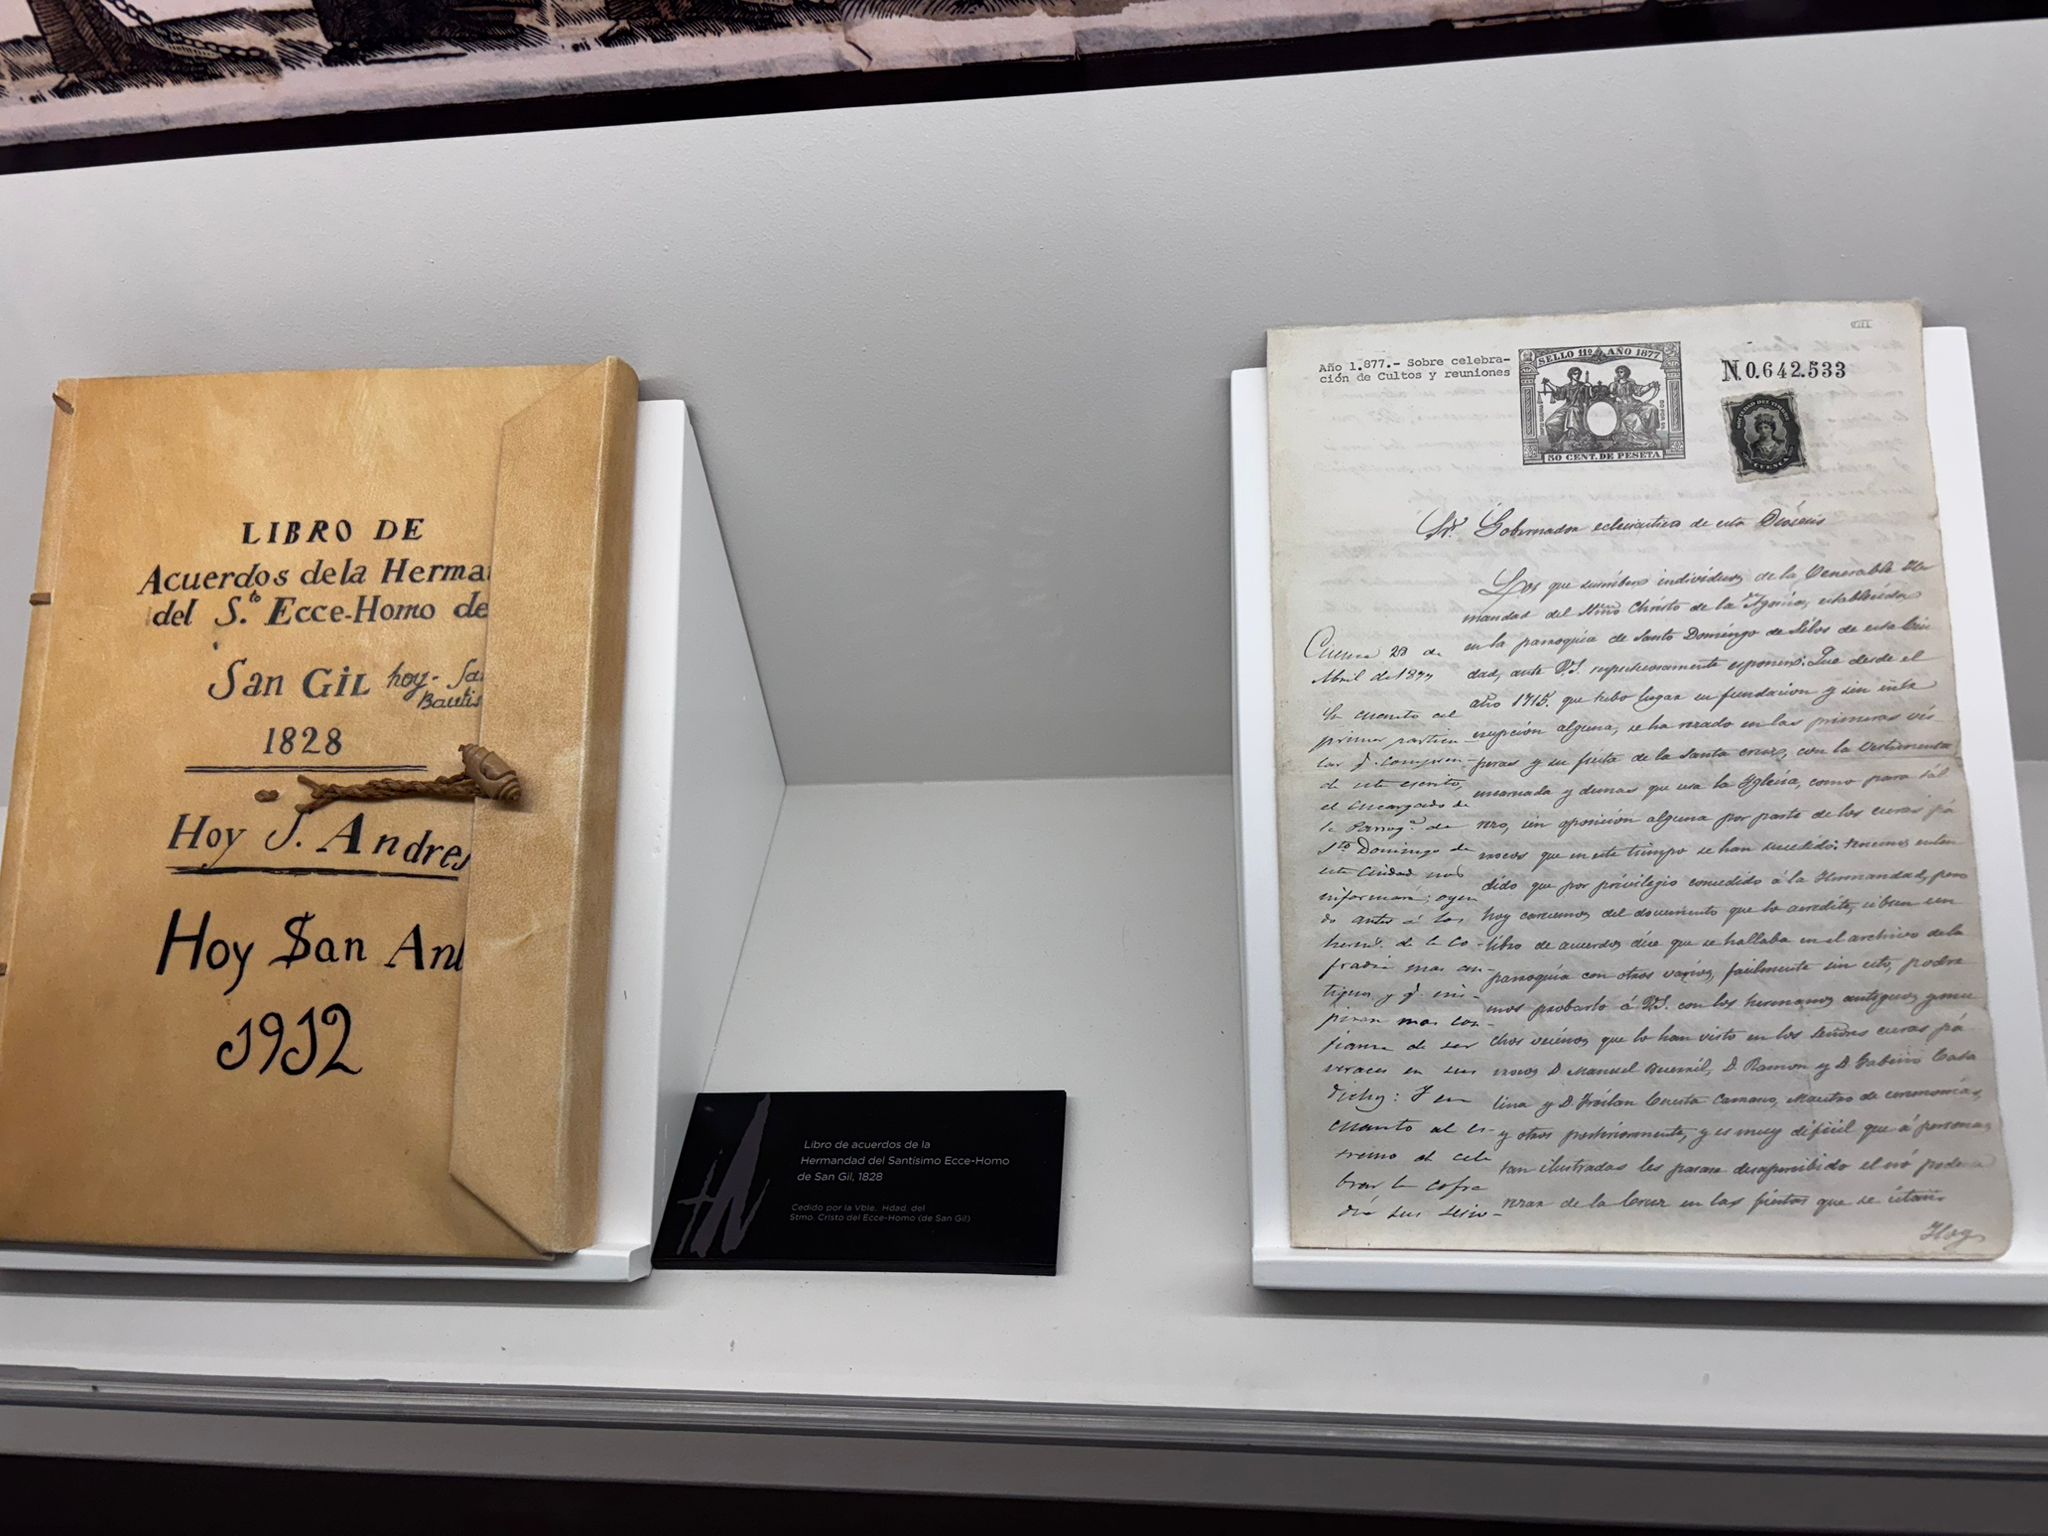 LIBRO DE
Acuerdos dela Herma
del S.to Ecce-Homo de
San Gil hoy- Sa
Bautis
1828
Hoy S. Andres
Hoy San And
1912
Libro de acuerdos de la
Hermandad del Santísimo Ecce-Homo
de San Gil, 1828
Cedido por la Vble. Hdad. del
Stmo. Cristo del Ecce-Homo (de San Gil)
Año 1.877.- Sobre celebra-
ción de Cultos y reuniones
SELLO 11º AÑO 1877
50 CENT. DE PESETA
N.0.642.533
CUENCA
Sr. Gobernador eclesiastico de esta Diócesis
Los que suscriben individuos de la Venerable Her
mandad del Stmo Christo de la Agonia, establecida
en la parroquia de Santo Domingo de Silos de esta Ciu
dad, ante V.S. respetuosamente esponen: Que desde el
año 1715. que tubo lugar su fundacion y sin inte
rrupción alguna, se ha rezado en las primeras vis
peras y su fiesta de la Santa cruz, con la vestimenta
encarnada y demas que usa la Yglesia, como para tal
rezo, sin oposicion alguna por parte de los curas pá
rrocos que en este tiempo se han sucedido: tenemos enten
dido que por privilegio concedido á la Hermandad, pero
hoy carecemos del documento que lo acredite, si bien un
libro de acuerdos dice que se hallaba en el archivo de la
parroquia con otros varios, facilmente sin esto, podre
mos probarlo á V.S. con los hermanos antiguos y mu
chos vecinos que lo han visto en los Señores curas pá
rrocos D. Manuel D. Ramon y D. Gabino Casa
lina y D. Froilan Cuesta Maestro de ceremonias,
y otros posteriormente, y es muy dificil que á personas
tan ilustradas les pasara desapercibido el nó poder
rezar de la Cruz en las fiestas que se
Hoy
Cuenca 28 de
Abril de 1877
En cuanto al
primer particu-
lar q. compren-
de este escrito,
el encargado de
la Parroq.a de
Sto Domingo de
esta Ciudad nos
informará; oyen
do antes á los
herms. de la Co-
fradia mas an-
tiguos y q. ins-
piren mas con-
fianza de ser
veraces en sus
dichos: Y en
cuanto al es-
tremo de cele
brar la cofra
dia sus sesio-